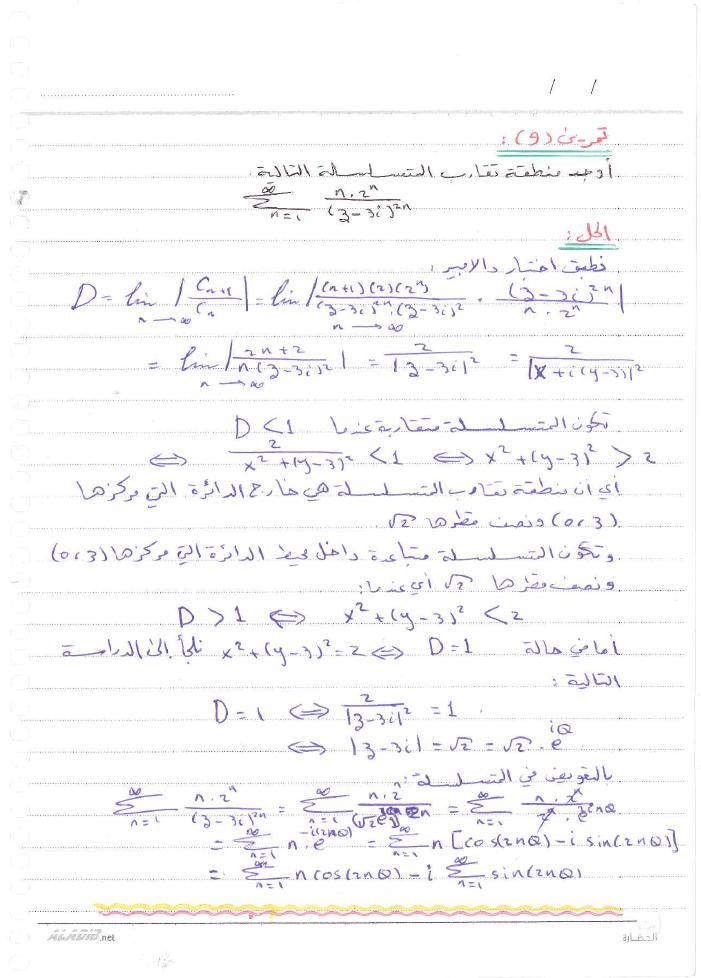 / /
تمرين (9):
أوجد منطقة تقارب المتسلسلة التالية.
∑_{n=1}^{∞} n·2^n / (z-3i)^{2n}
الحل:
نطبق اختبار دالامبير:
D = lim_{n→∞} |C_{n+1}/C_n| = lim_{n→∞} |(n+1)(2)(2^n) / (z-3i)^{2n}·(z-3i)^2 · (z-3i)^{2n} / n·2^n|
= lim_{n→∞} |2n+2 / n(z-3i)^2| = 2/|z-3i|^2 = 2/|x+i(y-3)|^2
تكون المتسلسلة متقاربة عندما D<1
⇔ 2/(x^2+(y-3)^2) <1 ⇔ x^2+(y-3)^2 > 2
أي أن منطقة تقارب المتسلسلة هي خارج الدائرة التي مركزها
(0,3) ونصف قطرها √2.
وتكون المتسلسلة متباعدة داخل محيط الدائرة التي مركزها (0,3)
ونصف قطرها √2 أي عندما:
D>1 ⇔ x^2+(y-3)^2 <2
أما في حالة D=1 ⇔ x^2+(y-3)^2=2 نلجأ إلى الدراسة
التالية:
D=1 ⇔ 2/|z-3i|^2 =1.
⇔ |z-3i| = √2 = √2 . e^{iθ}
بالتعويض في المتسلسلة:
∑_{n=1}^{∞} n·2^n/(z-3i)^{2n} = ∑_{n=1}^{∞} n·2^n/(√2e^{iθ})^{2n} = ∑_{n=1}^{∞} n·2^n/2^n·e^{i2nθ}
= ∑_{n=1}^{∞} n·e^{-i(2nθ)} = ∑_{n=1}^{∞} n[cos(2nθ)-i sin(2nθ)]
= ∑_{n=1}^{∞} n cos(2nθ) - i ∑_{n=1}^{∞} sin(2nθ)
ALADIB.net
الحضارة